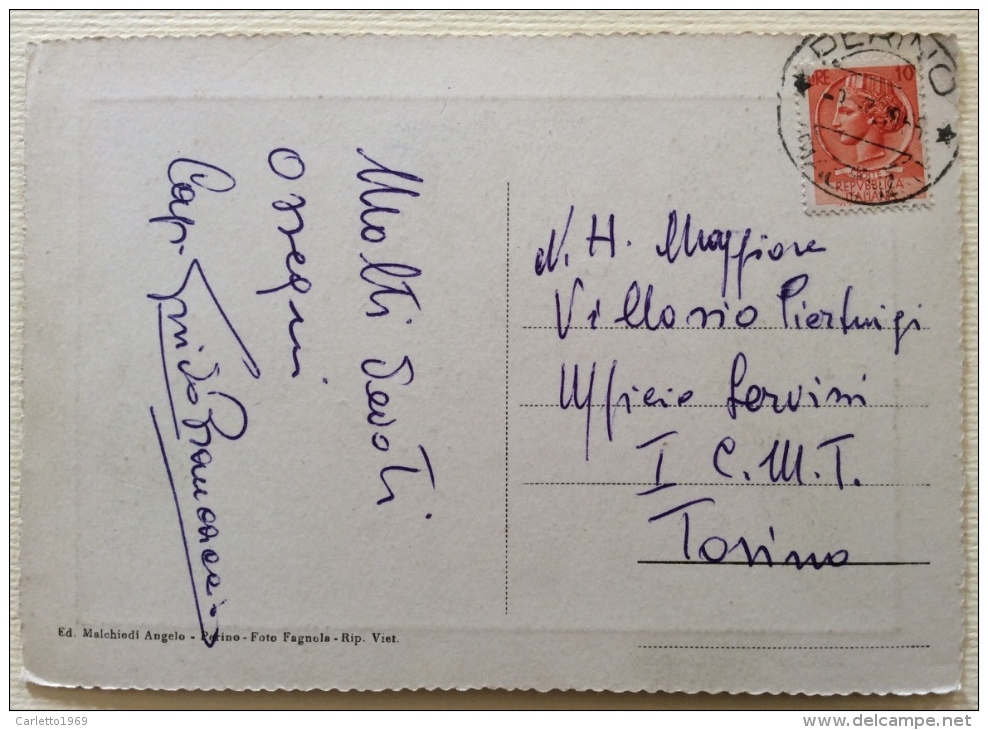 Molti devoti
ossequi
Cap. Guido
PERINO
LIRE 10
POSTE
REPVBBLICA
ITALIANA
N. H. Maggiore
Villosio Pierluigi
Ufficio Servizi
I C. M. T.
Torino
Ed. Malchiodi Angelo - Perino - Foto Fagnola - Rip. Viet.
Carletto1969
delcampe.net